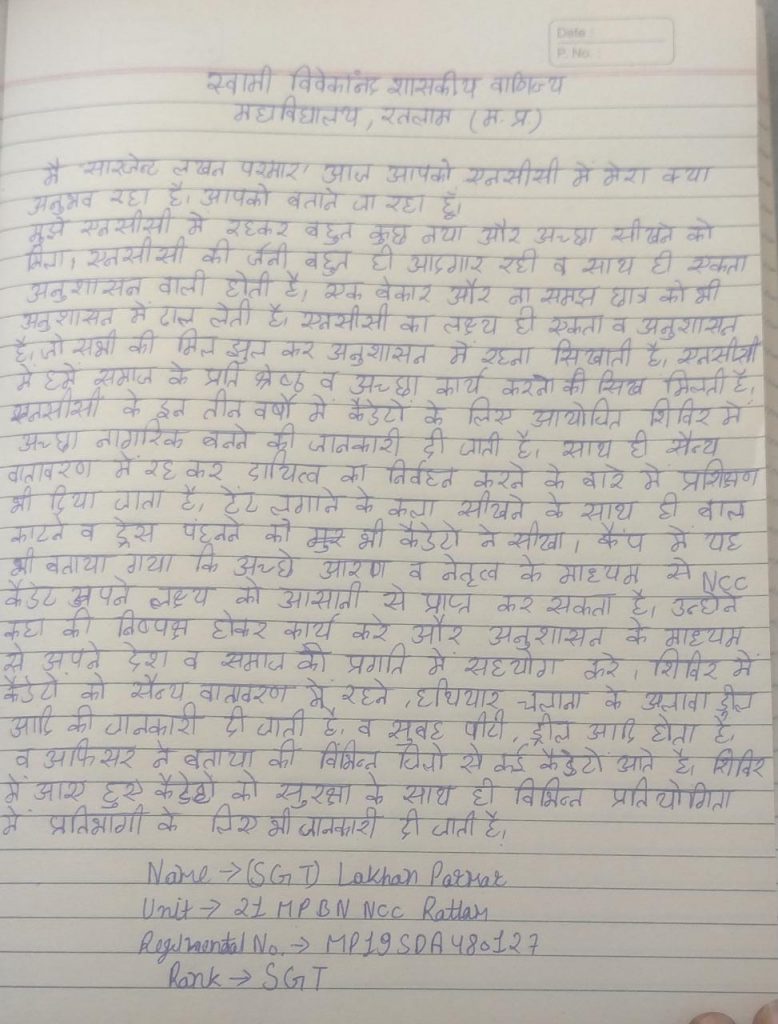 Date :
P. No. :
स्वामी विवेकानंद शासकीय वाणिज्य
महाविद्यालय, रतलाम (म. प्र)
मै "सारजेन्ट लखन परमार' आज आपको एनसीसी में मेरा क्या
अनुभव रहा है। आपको बताने जा रहा हूँ।
मुझे एनसीसी मे रहकर बहुत कुछ नया और अच्छा सीखने को
मिला, एनसीसी की जर्नी बहुत ही आदगार रही व साथ ही एकता
अनुशासन वाली होती है, एक बेकार और ना समझ छात्र को भी
अनुशासन में ढाल लेती है, एनसीसी का लक्ष्य ही एकता व अनुशासन
है, जो सभी की मिल झुल कर अनुशासन में रहना सिखाती है, एनसीसी
में हमें समाज के प्रति श्रेष्ठ व अच्छा कार्य करने की सिख मिलती है,
एनसीसी के इन तीन वर्षो में कैडेटो के लिए आयोजित शिविर में
अच्छा नागरिक बनने की जानकारी दी जाती है। साथ ही सैन्य
वातावरण में रह कर दायित्व का निर्वहन करने के बारे में प्रशिक्षण
भी दिया जाता है, टेंट लगाने के कला सीखने के साथ ही बाल
काटने व ड्रेस पहनने को भी कैडेटो ने सीखा। कैंप में यह
भी बताया गया कि अच्छे आरण व नेतृत्व के माध्यम से NCC
कैडेट अपने लक्ष्य को आसानी से प्राप्त कर सकता है, उन्होंने
कहा की निष्पक्ष होकर कार्य करे और अनुशासन के माध्यम
से अपने देश व समाज की प्रगति में सहयोग करे, शिविर में
कैडेटो को सैन्य वातावरण में रहने, हथियार चलाना के अलावा ड्रील
आदि की जानकारी दी जाती है, व सुबह पीटी, ड्रील आदि होता है,
व अफिसर ने बताया की विभिन्न जिलो से कई कैडेटो आते है, शिविर
में आए हुए कैडेटो को सुरक्षा के साथ ही विभिन्न प्रतियोगिता
में प्रतिभागी के लिए भी जानकारी दी जाती है,
Name → (SGT) Lakhan Parmar
Unit → 21 MP BN NCC Ratlam
Regimental No. → MP19SDA480127
Rank → SGT